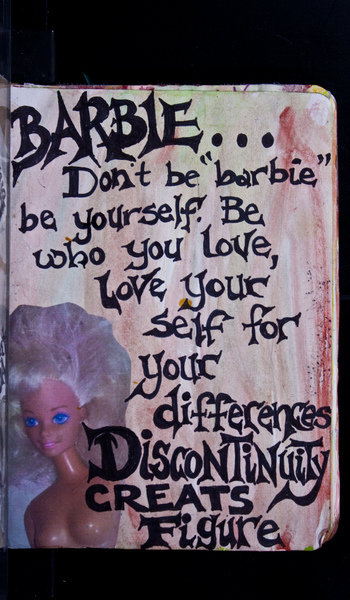 BARBIE...
Don't be "barbie"
be yourself. Be
who you love,
love your
self for
your
differences
DISCONTINUITY
CREATS
Figure